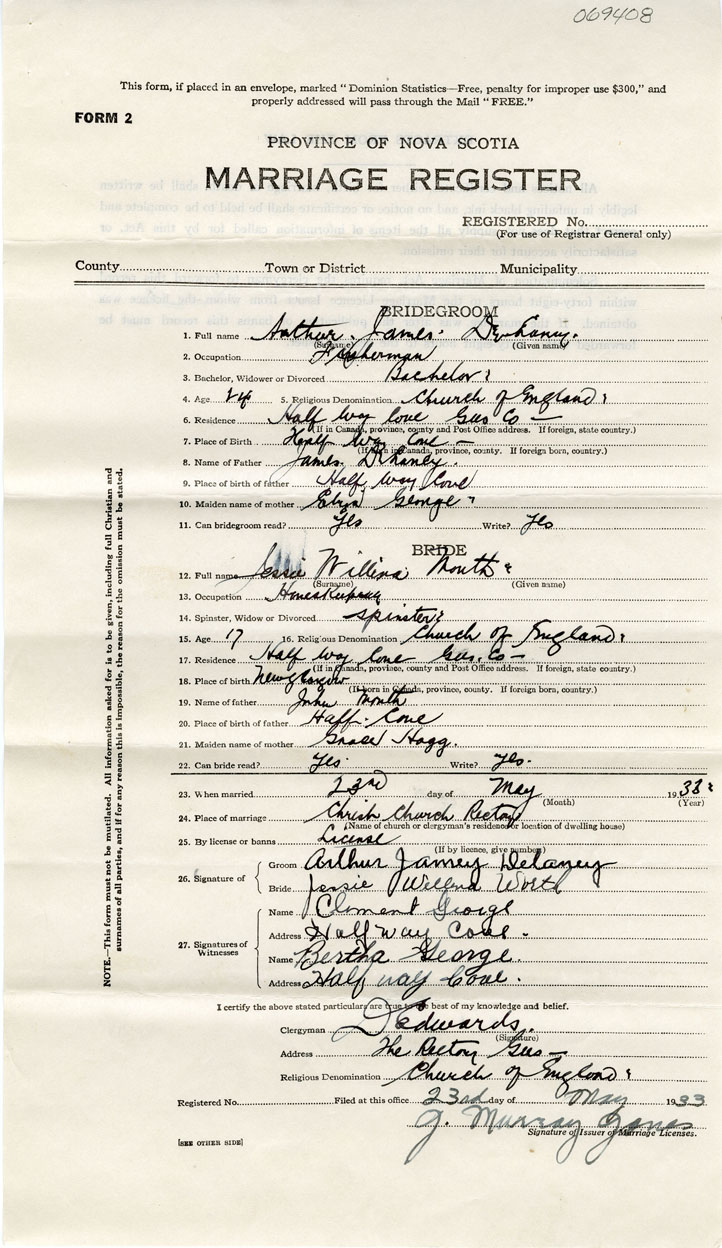 069408
This form, if placed in an envelope, marked "Dominion Statistics—Free, penalty for improper use $300," and
properly addressed will pass through the Mail "FREE."
FORM 2
PROVINCE OF NOVA SCOTIA
MARRIAGE REGISTER
REGISTERED No.
(For use of Registrar General only)
County Town or District Municipality
BRIDEGROOM
1. Full name Arthur James Dehaney.
(Surname) (Given name)
2. Occupation Fisherman
3. Bachelor, Widower or Divorced Bachelor
4. Age 24 5. Religious Denomination Church of England
6. Residence Half Way Cove Gus Co —
(If in Canada, province, county and Post Office address. If foreign, state country.)
7. Place of Birth Half Way Cove —
(If born in Canada, province, county. If foreign born, country.)
8. Name of Father James Dehaney.
9. Place of birth of father Half way Cove
10. Maiden name of mother George
11. Can bridegroom read? Yes Write? Yes
BRIDE
12. Full name Jessie Willina Month
(Surname) (Given name)
13. Occupation Housekeeping
14. Spinster, Widow or Divorced Spinster
15. Age 17 16. Religious Denomination Church of England
17. Residence Half Way Cove Gus. Co —
(If in Canada, province, county and Post Office address. If foreign, state country.)
18. Place of birth New Glasgow
(If born in Canada, province, county. If foreign born, country.)
19. Name of father John Month
20. Place of birth of father Half. Cove
21. Maiden name of mother Grace Hogg.
22. Can bride read? Yes. Write? Yes.
23. When married 23rd day of May 1933
(Month) (Year)
24. Place of marriage Christ Church Rectory
(Name of church or clergyman's residence or location of dwelling house)
25. By license or banns License
(If by licence, give number)
26. Signature of
Groom Arthur James Delaney
Bride Jessie Willena Worth
27. Signatures of Witnesses
Name Clement George
Address Halfway Cove.
Name Bertha George.
Address Half way Cove.
I certify the above stated particulars are true to the best of my knowledge and belief.
Clergyman D Edwards.
(Signature)
Address The Rectory Gus —
Religious Denomination Church of England
Registered No. Filed at this office 23rd day of May 1933
G. Murray Jones
Signature of Issuer of Marriage Licenses.
[SEE OTHER SIDE]
NOTE.—This form must not be mutilated. All information asked for is to be given, including full Christian and
surnames of all parties, and if for any reason this is impossible, the reason for the omission must be stated.